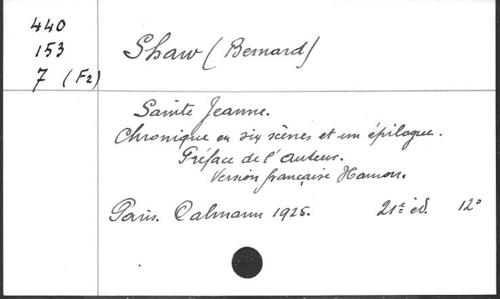 440
153
7 (F2)
Shaw (Bernard)
Sainte Jeanne.
Chronique en six scènes et un épilogue.
Préface de l'auteur.
Version française Hamon.
Paris. Calmann 1925. 21e éd. 12°